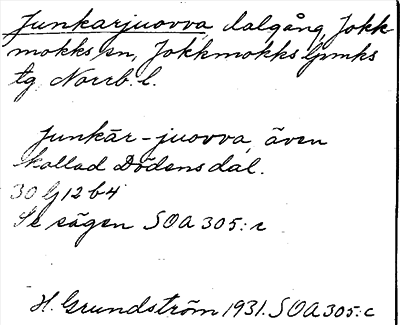 Junkarjuovva, dalgång, Jokk-
mokks sn, Jokkmokks lpmks
tg, Norrb. l.
Junkār-juovva, även
kallad Dödens dal.
30 G 12 b4
Se sägen SOA 305:c
H. Grundström 1931. SOA 305:c